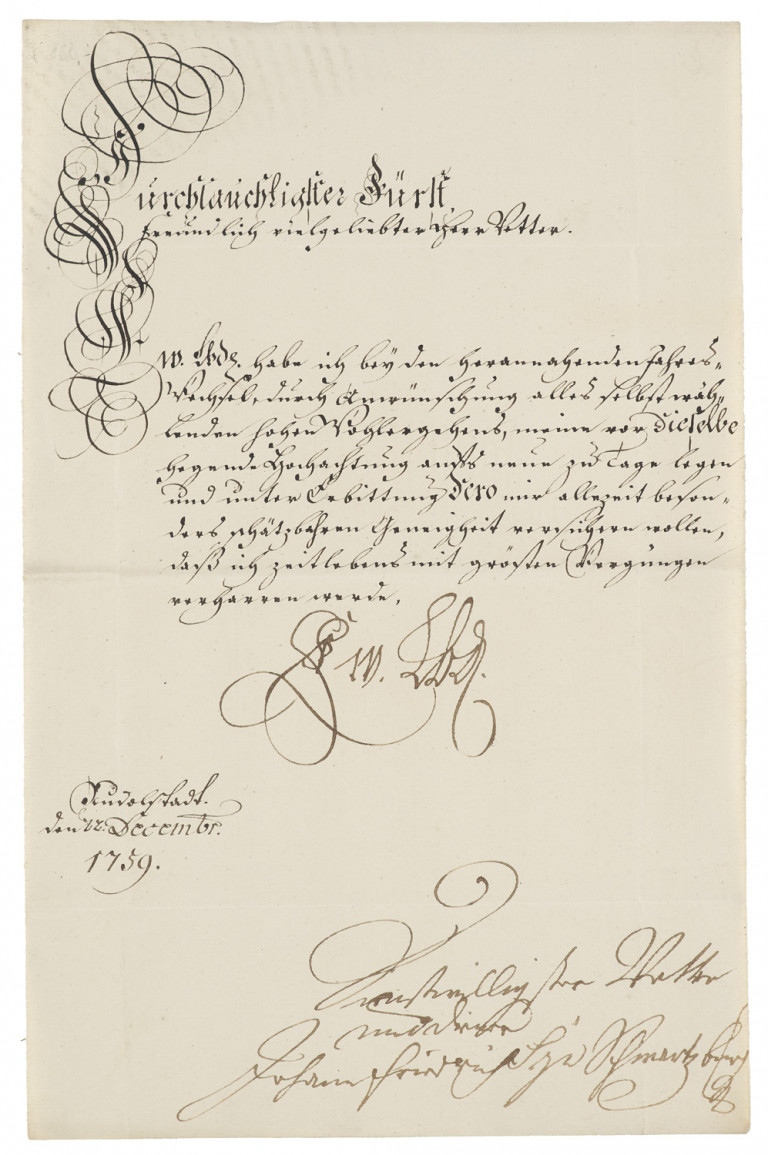 Durchlauchtigster Fürst,
Freundlich vielgeliebter Herr Vetter.
Ew. Lbd. habe ich bey den herannahenden Jahres-
Wechsel, durch Anwünschung alles selbst wäh-
lenden hohen Wohlergehens, meine vor Dieselbe
hegende Hochachtung auffs neue zu Tage legen
und unter Erbittung Dero mir allezeit beson-
ders schätzbahren Geneigheit versichern wollen,
daß ich zeitlebens mit grösten Vergnügen
verharren werde,
Ew. Lbd.
Rudolstadt.
den 22. Decembr.
1759.
Dienstwilligster Vetter
und Diener
Johann Friedrich FzuSchwartzburg